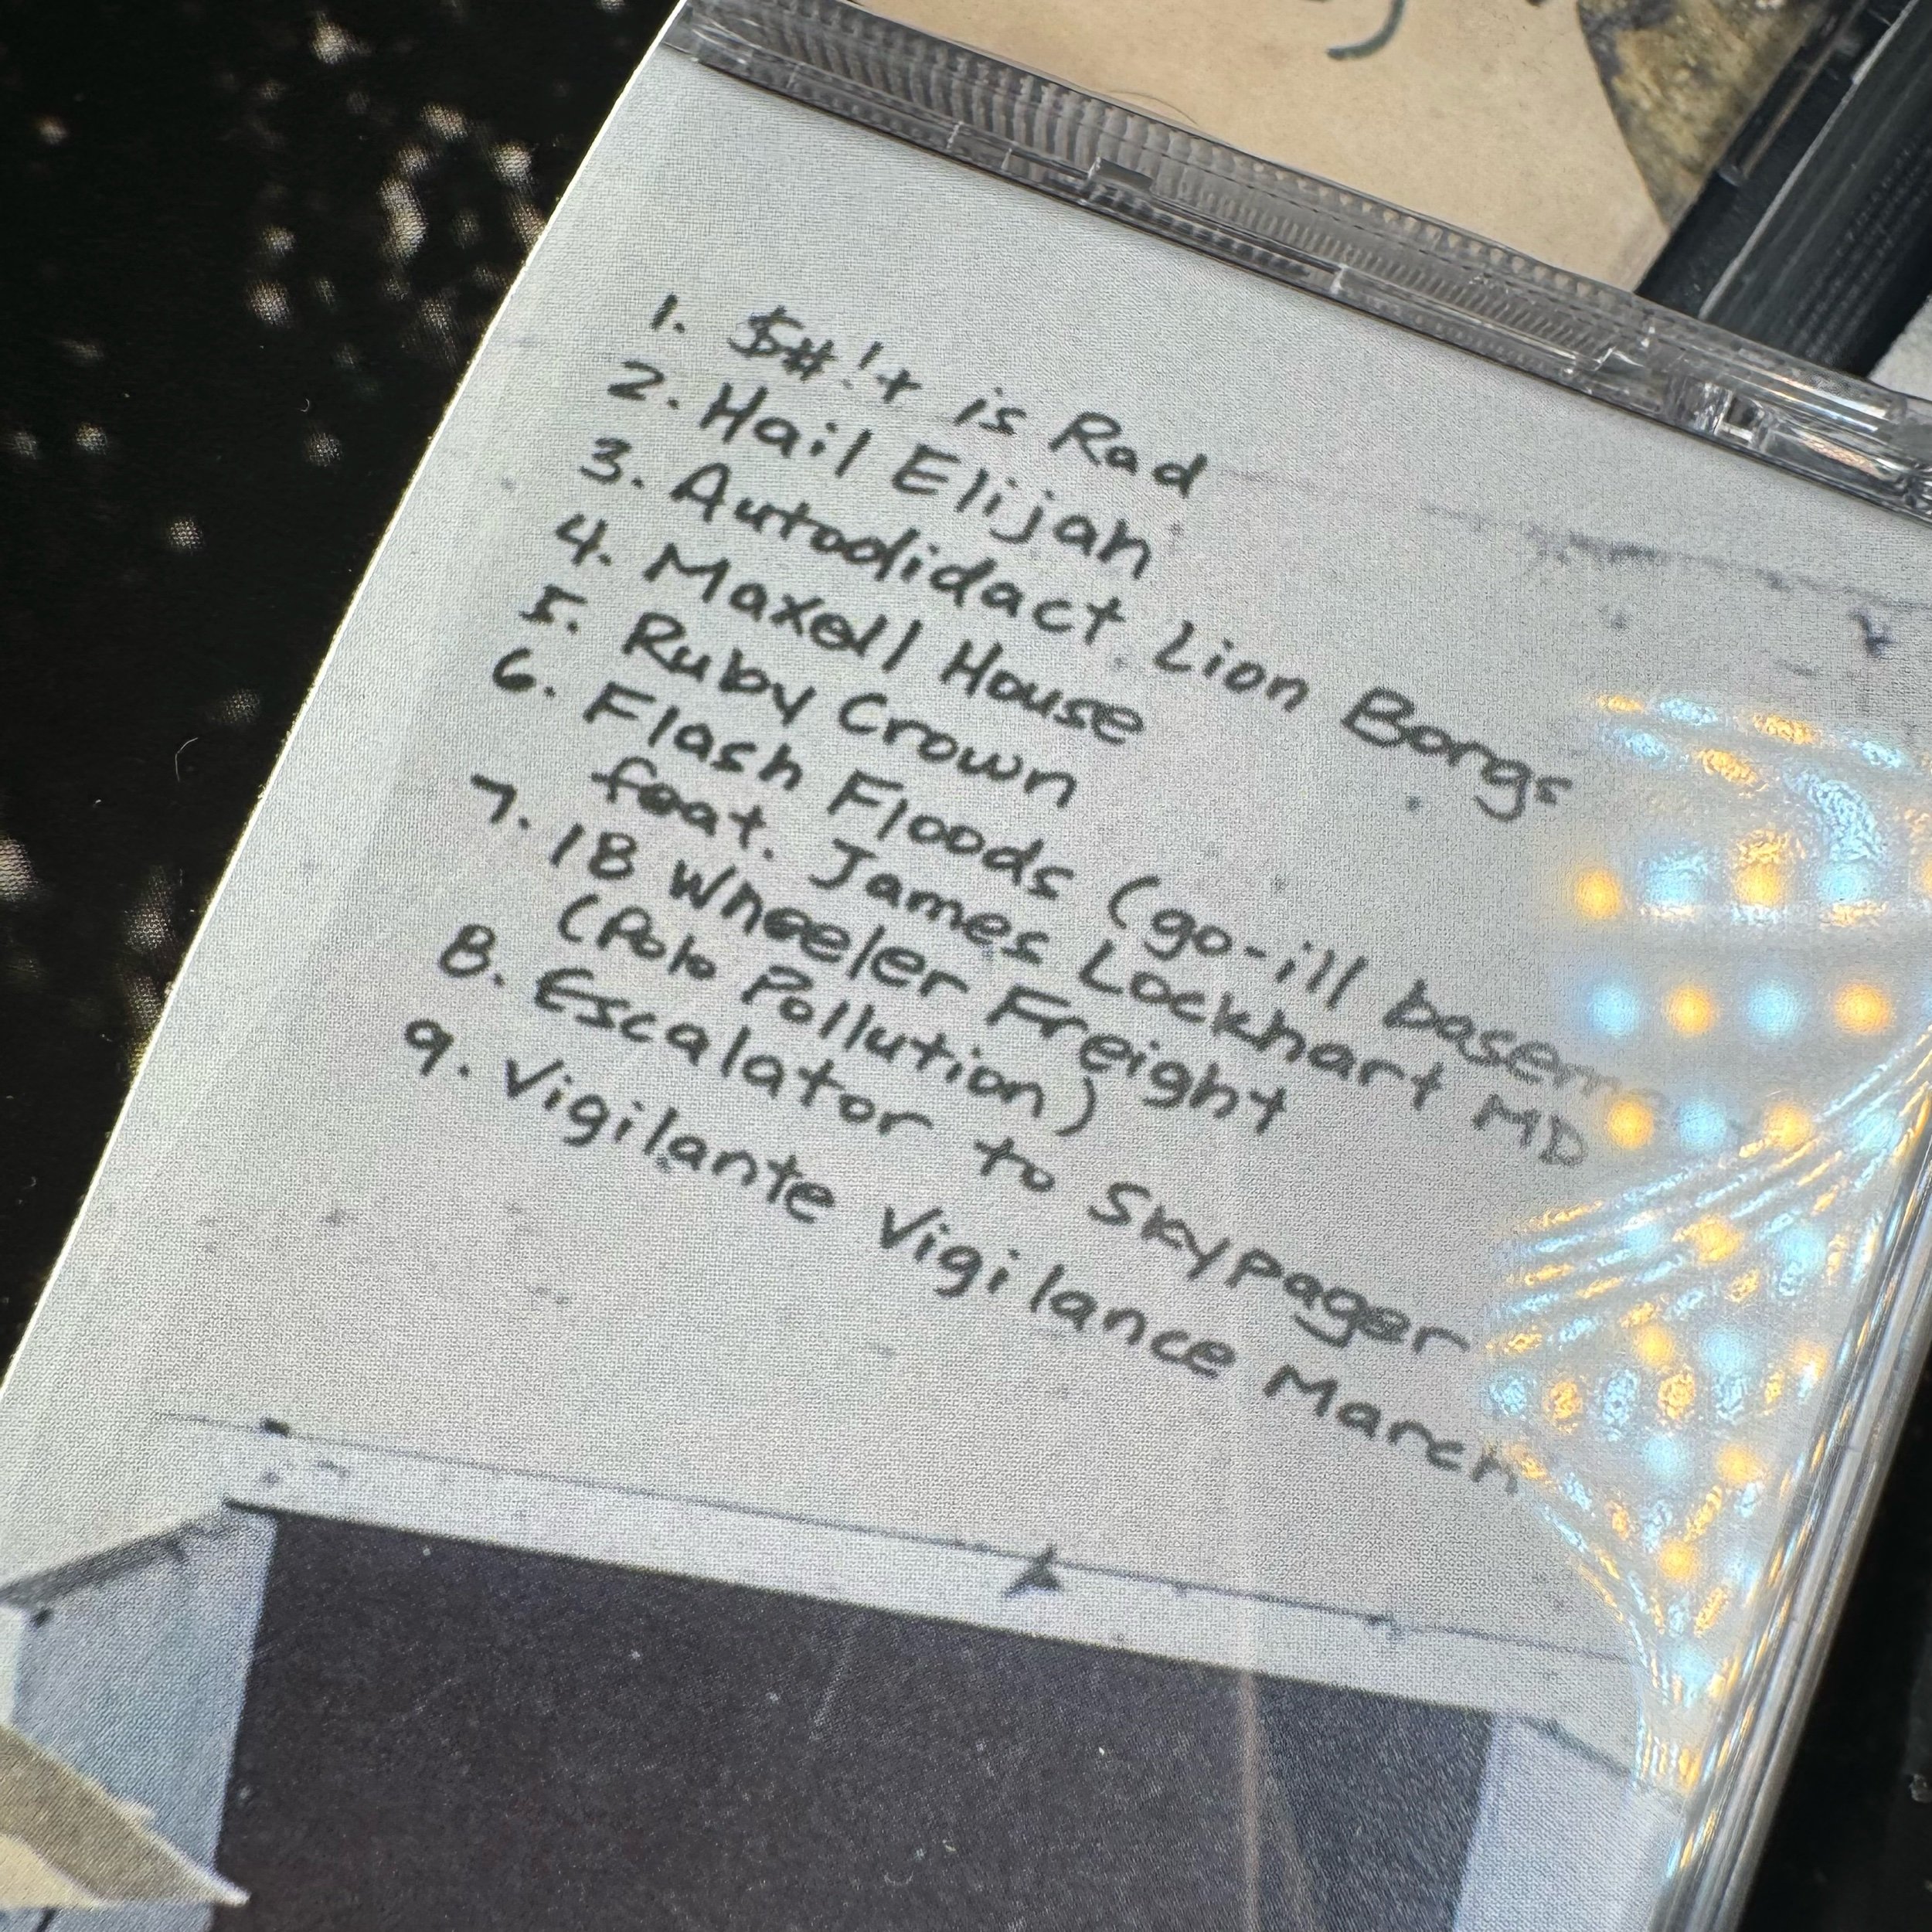 1. $#!+ is Rad
2. Hail Elijah
3. Autodidact Lion Borgs
4. Maxell House
5. Ruby Crown
6. Flash Floods (go-ill
feat. James Lockhart MD
7. 18 Wheeler Freight
(Polo Pollution)
8. Escalator to Skypager
9. Vigilante Vigilance March